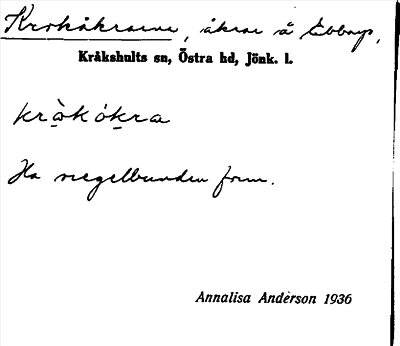 Krokåkrarne, åkrar å Ebbarp,
Kråkshults sn, Östra hd, Jönk. l.
kràkókra
Ha regelbunden form.
Annalisa Anderson 1936